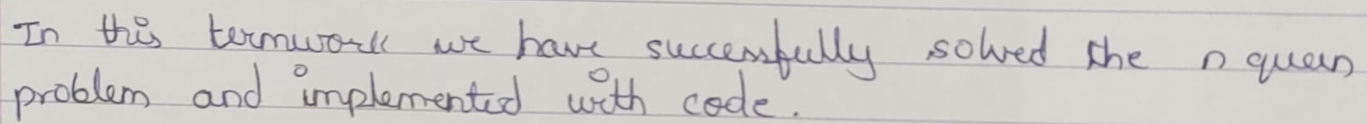 In this termwork we have successfully solved the n queen
problem and implemented with code.